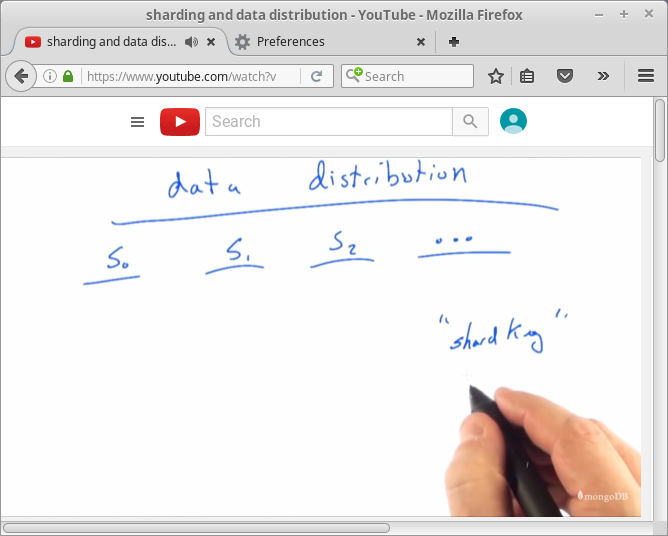 sharding and data distribution - YouTube - Mozilla Firefox
sharding and data dis...
Preferences
https://www.youtube.com/watch?v
Search
Search
data distribution
S0 S1 S2 ...
"shard key"
mongoDB